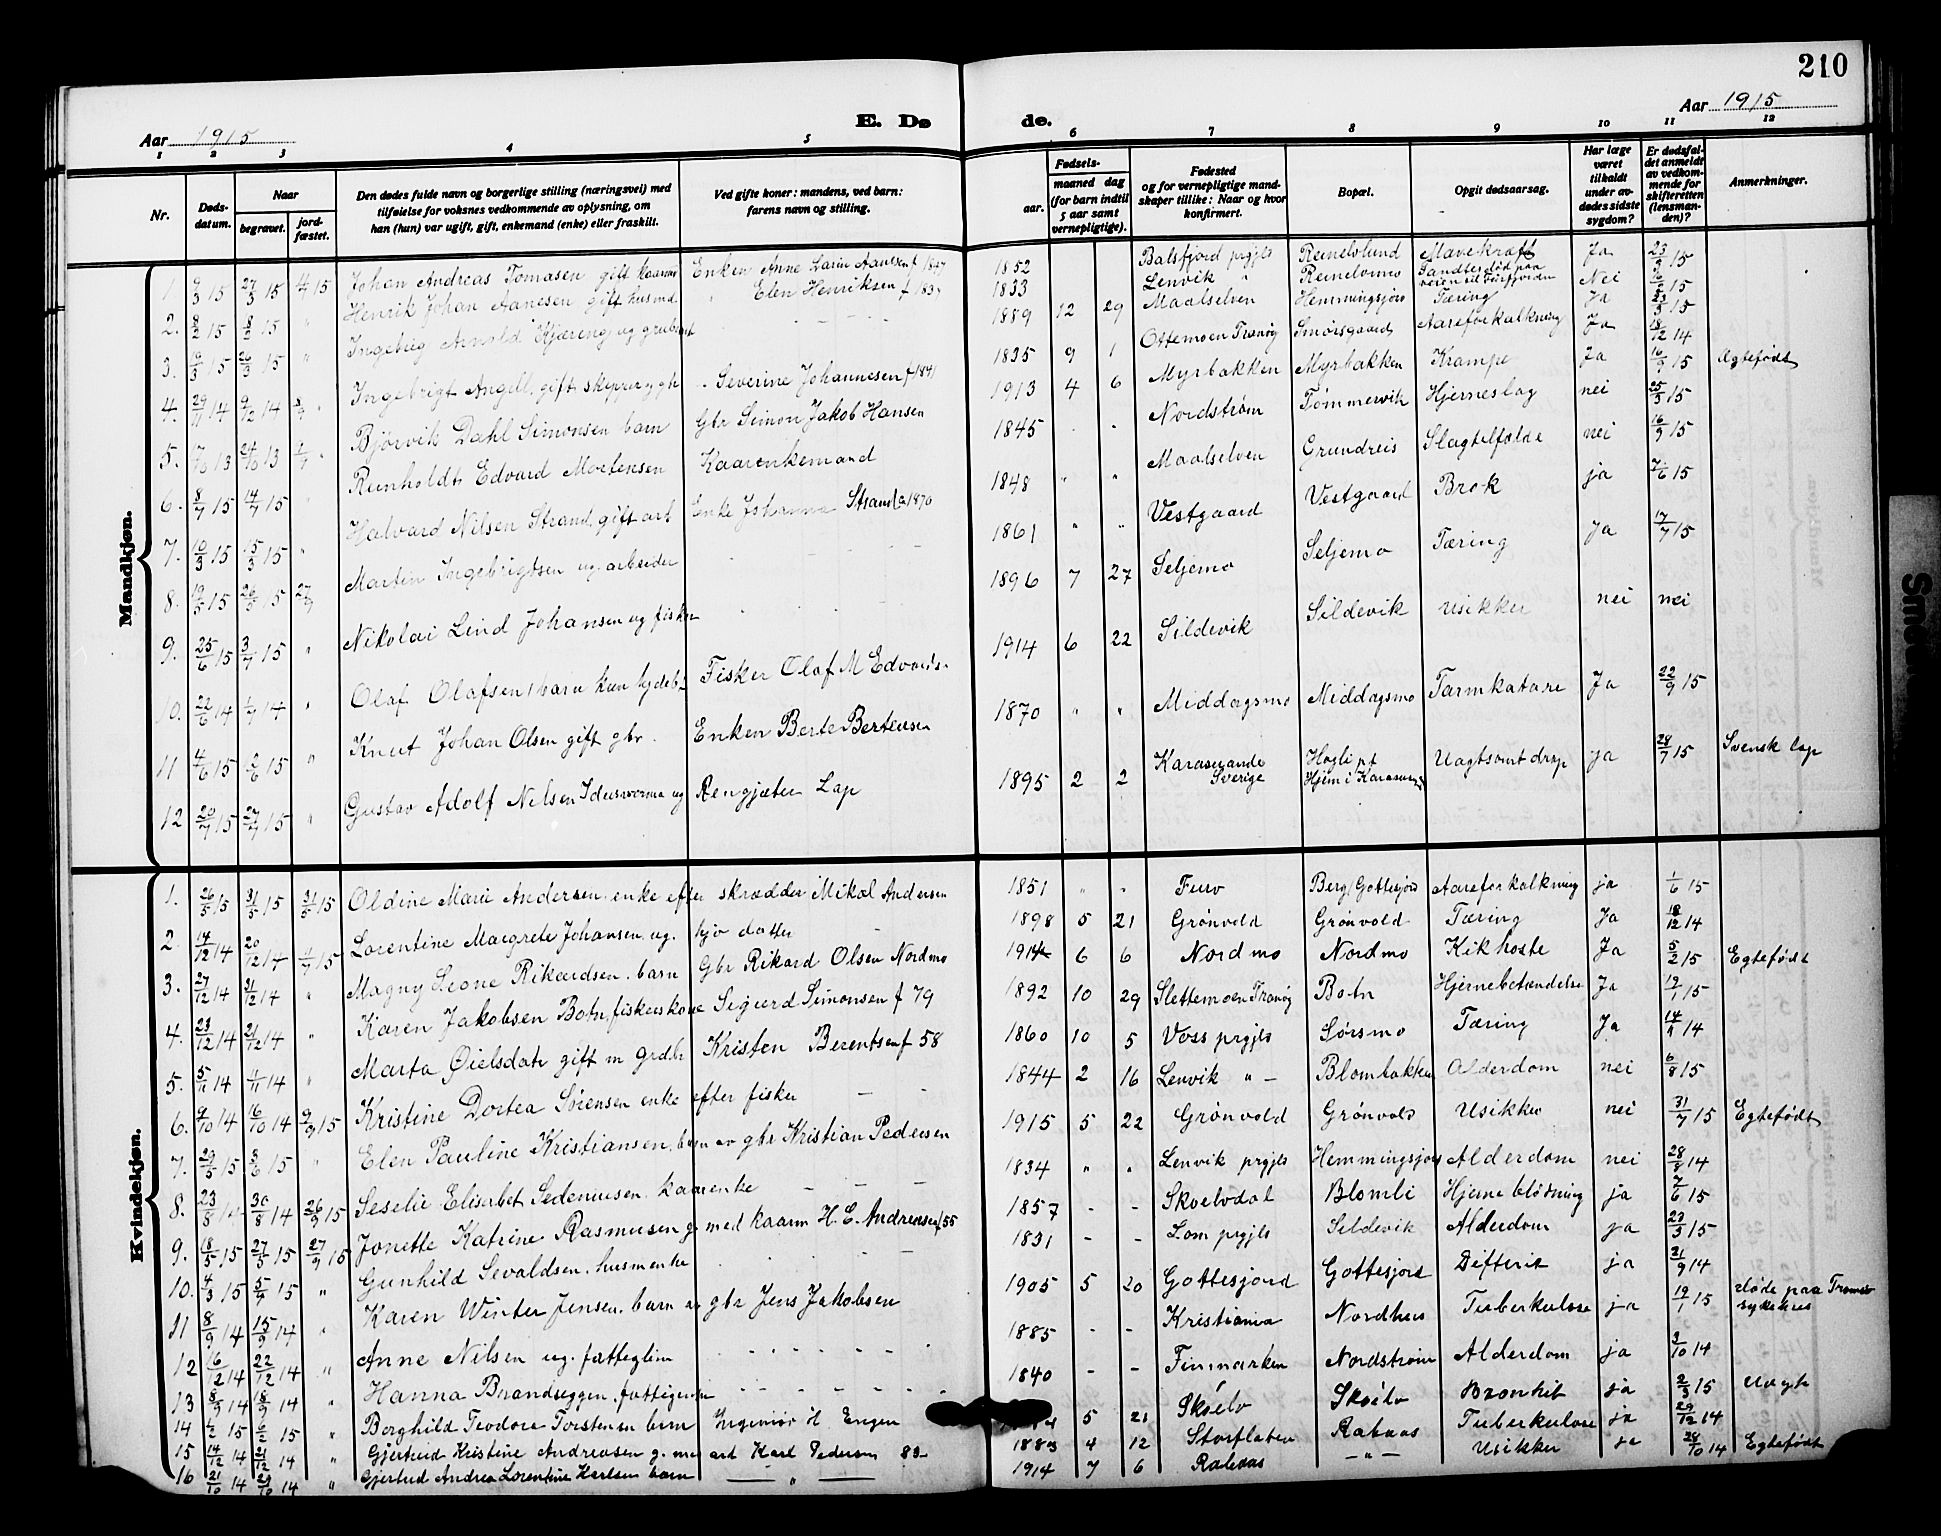 210
Aar 1915
E. Døde.
Aar 1915
1 2 3 4 5 6 7 8 9 10 11 12
Nr.
Døds-datum.
Naar
begravet.
jord-fæstet.
Den dødes fulde navn og borgerlige stilling (næringsvei) med tilføielse for voksnes vedkommende av oplysning, om han (hun) var ugift, gift, enkemand (enke) eller fraskilt.
Ved gifte koner: mandens, ved barn: farens navn og stilling.
Fødsels-
aar.
maaned dag
(for barn indtil 5 aar samt vernepligtige).
Fødested og for vernepligtige mand-skaper tillike: Naar og hvor konfirmert.
Bopæl.
Opgit dødsaarsag.
Har læge været tilkaldt under av-dødes sidste sygdom?
Er dødsfal-det anmeldt av vedkom-mende for skifteretten (lensman-den)?
Anmerkninger.
Mandkjøn.
1. 9/3 15 27/3 15 4/7 15 Johan Andreas Tomasen gift kaarm Enken Anne 1852 Balsfjord prgjls Reinelvlund Mavekræft Ja 23/9 15
2. 8/2 15 8/2 15 " Henrik Johan Aanesen gift husmd " Elen Henriksen f 183 1833 Lenvik " Reinelvmo Nei
3. 26/3 15 " Ingebrig Arnold Kjæreng ug 1889 12 29 Maalselven Hemmingsjord Tæring Ja 23/3 15
4. 29/11 14 9/12 14 Ingebrigt Angell, gift Severine Johannesen f 1841 1835 9 1 Ottemoen Tranøy Smørsgaard Aareforkalkning Ja 18/12 14
5. 7/10 13 24/10 13 Bjørvik Dahl Simonsen barn Gbr Simon Jakob Hansen 1913 4 6 Myrbakken Myrbakken Krampe Ja 16/9 15 Ægtefødt
6. 8/7 15 14/7 15 " Reinholdt Edvard Mortensen Kaarenkemand 1845 " " Nordstrøm Tømmervik Hjerneslag nei 25/5 15
7. 10/3 15 15/3 15 " Halvard Nilsen Strand, gift arb Enke Johanna Strand 1870 1848 " " Maalselven Grundreis Slagtilfælde nei 16/9 15
8. 19/5 15 26/5 15 27/9 Martin Ingebrigtsen ug. arbeider 1861 " " Vestgaard Vestgaard Brok ja 7/6 15
9. 25/6 15 3/7 15 " Nikolai Lind Johansen ug fisker 1896 7 27 Seljemo Seljemo Tæring Ja 17/7 15
10. 22/6 14 1/9 14 " Olaf Olafsen, barn Fisker Olaf M Edvards. 1914 6 22 Sildevik Sildevik usikker nei nei
11 4/6 15 2/6 15 " Knut Johan Olsen gift gbr. Enken Berte Bertensen 1870 " " Middagsmo Middagsmo Tarmkatare Ja 22/9 15
12 20/7 15 27/7 15 " Gustav Adolf Nilsen Idersvorma ug Rengjæter Lap 1895 2 2 Karasuando Sverige Høgli pt Hjem i Karasuando Uagtsomt drap ja 28/7 15 Svensk lap
Kvindekjøn.
1. 26/5 15 31/5 15 31/5 15 Oldine Marie Andersen, enke efter skrædder Mikal Andersen 1851 " " Furo Berg, Gottesjord Aareforkalkning ja 1/6 15
2. 14/12 14 20/12 14 1/7 15 Lorentine Margrete Johansen ug. hjv datter 1898 5 21 Grønvold Grønvold Tæring Ja 18/12 14
3. 27/12 14 31/12 14 " Magny Leone Rikardsen, barn Gbr Rikard Olsen Nordmo 1914 6 6 Nordmo Nordmo Kikhoste Ja 5/2 15 Egtefødt
4. 23/12 14 21/12 14 " Karen Jakobsen Botn, fiskerskone Sigurd Simonsen f 79 1892 10 29 Slettemoen Tranøy Botn Hjernebetændelse Ja 19/1 15
5. 5/11 14 1/11 14 " Marta Øielsdatr gift m grdbr Kristen Berentsen f 58 1860 10 5 Voss prgjls Sørsmo Tæring Ja 14/9 14
6. 9/10 14 16/10 14 9/9 15 Kristine Dortea Sørensen enke efter fisker 1844 2 16 Lenvik " - Blombakken Alderdom nei 6/8 15
7. 29/5 15 3/6 15 " Elen Pauline Kristiansen, barn av gbr Kristian Pedersen 1915 5 22 Grønvold Grønvold Usikker nei 31/7 15 Egtefødt
8. 23/8 14 30/8 14 26/9 15 Seselie Elisabet Sedeniusen. kaarenke 1834 " " Lenvik prgjls Hemmingsjord Alderdom nei 28/8 14
9. 18/5 15 27/5 15 27/9 15 Jonette Katrine Rasmusen g. med kaarm H. E. Andreasen f 55 1857 - - Skoelvdal Blomli Hjerneblødning ja 7/6 15
10. 4/3 15 5/7 15 " Gunhild Sevaldsen, husmenke 1831 - - Lom prgjls Sildevik Alderdom ja 23/3 15
11 8/9 14 15/9 14 " Karen Winter Jensen, barn av gbr Jens Jakobsen 1905 5 20 Gottesjord Gottesjord Difterit ja 21/9 14
12 16/12 14 22/12 14 " Anne Nilsen ug. fattiglem 1885 - - Kristiania Nordhus Tuberkulose ja 19/1 15 døde paa Tromsø sykehus
13 8/9 14 18/9 14 " Hanna Brandseggen, 1840 - - Finmarken Nordstrøm Alderdom ja 3/10 14
14 1/2 15 6/2 15 " Borghild Teodora Torstensen barn Ingeniør H. Engen 5 21 Skoelv Skoelv Bronkit ja 2/3 15 Uægte
15 14/12 14 21/12 14 " Gjertrud Kristine Andreasen g. m arb Karl Pedersen 83 1883 4 12 Storflaten Rabaas Tuberkulose ja 29/12 14
16 21/10 14 29/10 14 " Gjertrud Andrea Lorentine Karlsen barn " 1914 7 6 Rabaas - " - Usikker ja 28/10 14 Egtefødt